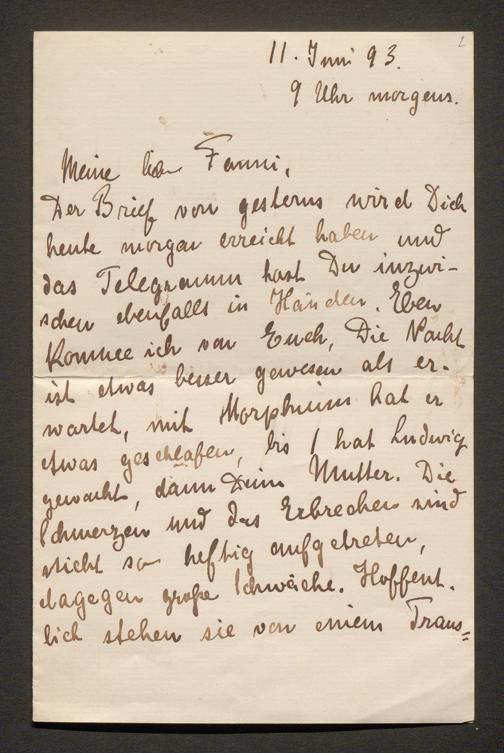 11. Juni 93.
9 Uhr morgens.
Meine liebe Fanni,
Der Brief von gestern wird Dich
heute morgen erreicht haben und
das Telegramm hast Du inzwi-
schen ebenfalls in Händen. Eben
komme ich von Euch, Die Nacht
ist etwas besser gewesen als er-
wartet, mit Morphium hat er
etwas geschlafen, bis 1 hat Ludwig
gewacht, dann Deine Mutter. Die
Schmerzen und das Erbrechen sind
nicht so heftig aufgetreten,
dagegen große Schwäche. Hoffent-
lich stehen sie von einem Trans=